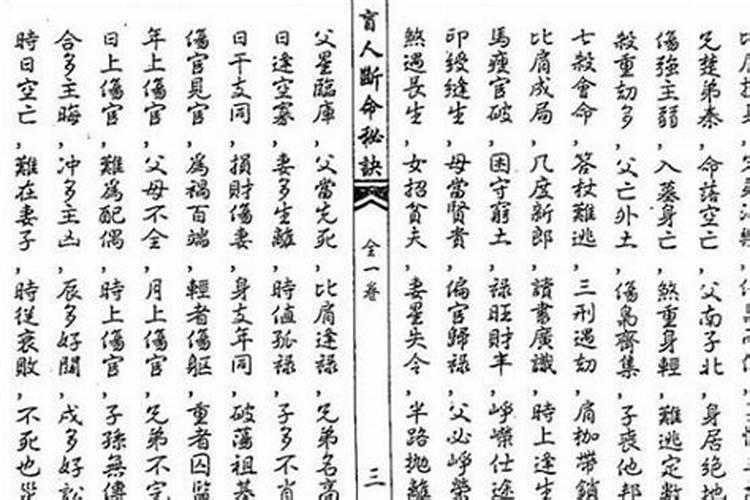 傷強主弱，入墓身亡，煞重身輕，難逃定數
殺重劫多，父亡外土，傷梟齊集，子喪他鄉
七殺會命，笞杖難逃，三刑遇劫，肩枷帶鎖
比肩成局，几度新郎，讀書廣識，時上逢生
馬瘦官破，困守窮土，祿旺財丰，崢嶸仕途
印綬逢生，母當賢貴，偏官歸祿，父必崢榮
煞遇長生，女招貧夫，妻星失令，半路拋離
盲人斷命秘訣 全一卷 三
父星臨庫，父當先死，比肩逢祿，兄弟名高
日逢空寡，妻多生離，時值孤祿，子多不肖
日干支同，損財傷妻，身支年同，破蕩祖基
傷官見官，為禍百端，輕者傷軀，重者囚監
年上傷官，父母不全，月上傷官，兄弟不完
日上傷官，難為配偶，時上傷官，子孫無傳
合多主晦，冲多主凶，辰多好鬪，戌多好訟
時日空亡，難在妻子，時從衰敗，不死也災